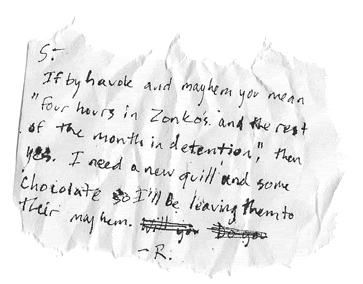 S:
If by havok and mayhem you mean
"four hours in Zonkos and the rest
of the month in detention," then
yes. I need a new quill and some
chocolate so I'll be leaving them to
their mayhem. will you Do you
-R.